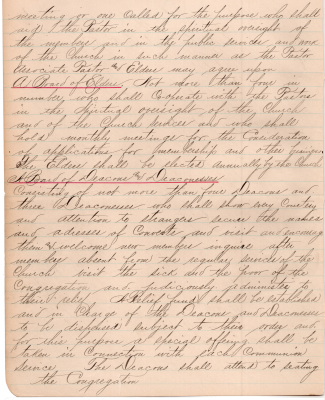 meeting or one called for the purpose who shall
the Pastor in the spiritual oversight of
the members and in the public services and work
of the Church in such manner as the Pastor
Associate Pastor & Elders may agree upon
A Board of Elders. Not more than four in
number, who shall Co-operate with the Pastors
in the spiritual oversight of the Church
and of the Church services and who shall
hold monthly meetings for the
of applications for membership and other
The Elders shall be elected annually by the Church
A Board of Deacons & Deaconesses
Consisting of not more than four Deacons and
three Deaconesses who shall show every Courtesy
and attention to strangers secure the names
and adresses of Converts and visit and encourage
them & welcome new members inquire after
members absent from the regular services of the
Church visit the sick and the poor of the
Congregation and judiciously administer to
their relief. A Relief fund shall be established
and in Charge of the Deacons and Deaconesses
to be dispensed subject to their order and
for this purpose a special offering shall be
taken in Connection with each Communion
service. The Deacons shall attend to seating
the Congregation